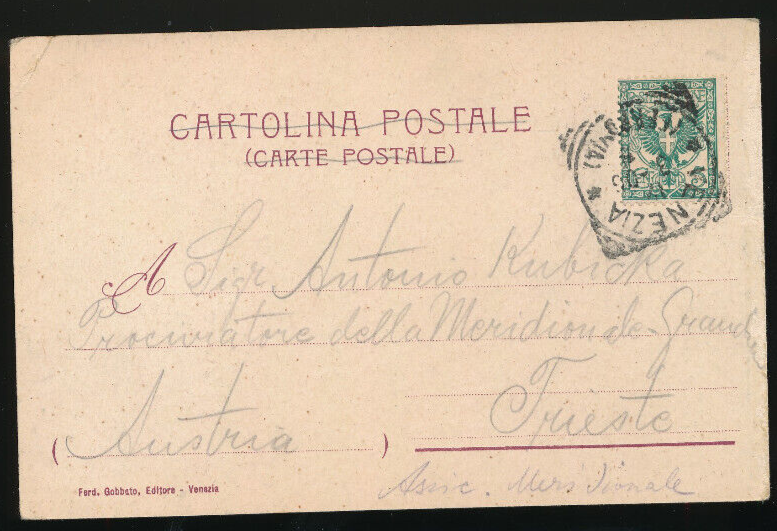 CARTOLINA POSTALE
(CARTE POSTALE)
VENEZIA
(FERROVIA)
A Sigr Antonio Kubicka
Procuratore della Meridionale-Grandine
Trieste
(Austria)
Ferd. Gobbato, Editore - Venezia
Assic. Meridionale